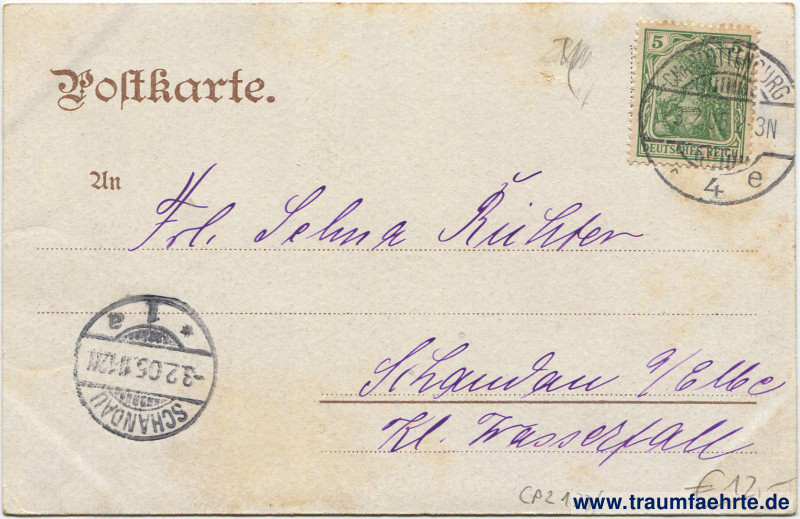 Postkarte.
5
DEUTSCHES REICH
CHARLOTTENBURG
3N
4 e
An
Frl. Selma Richter
* 1 a
-3.2.05.11-12N
SCHANDAU
Schandau a/Elbe
Kl. Wasserfall
€ 12,-
www.traumfaehrte.de